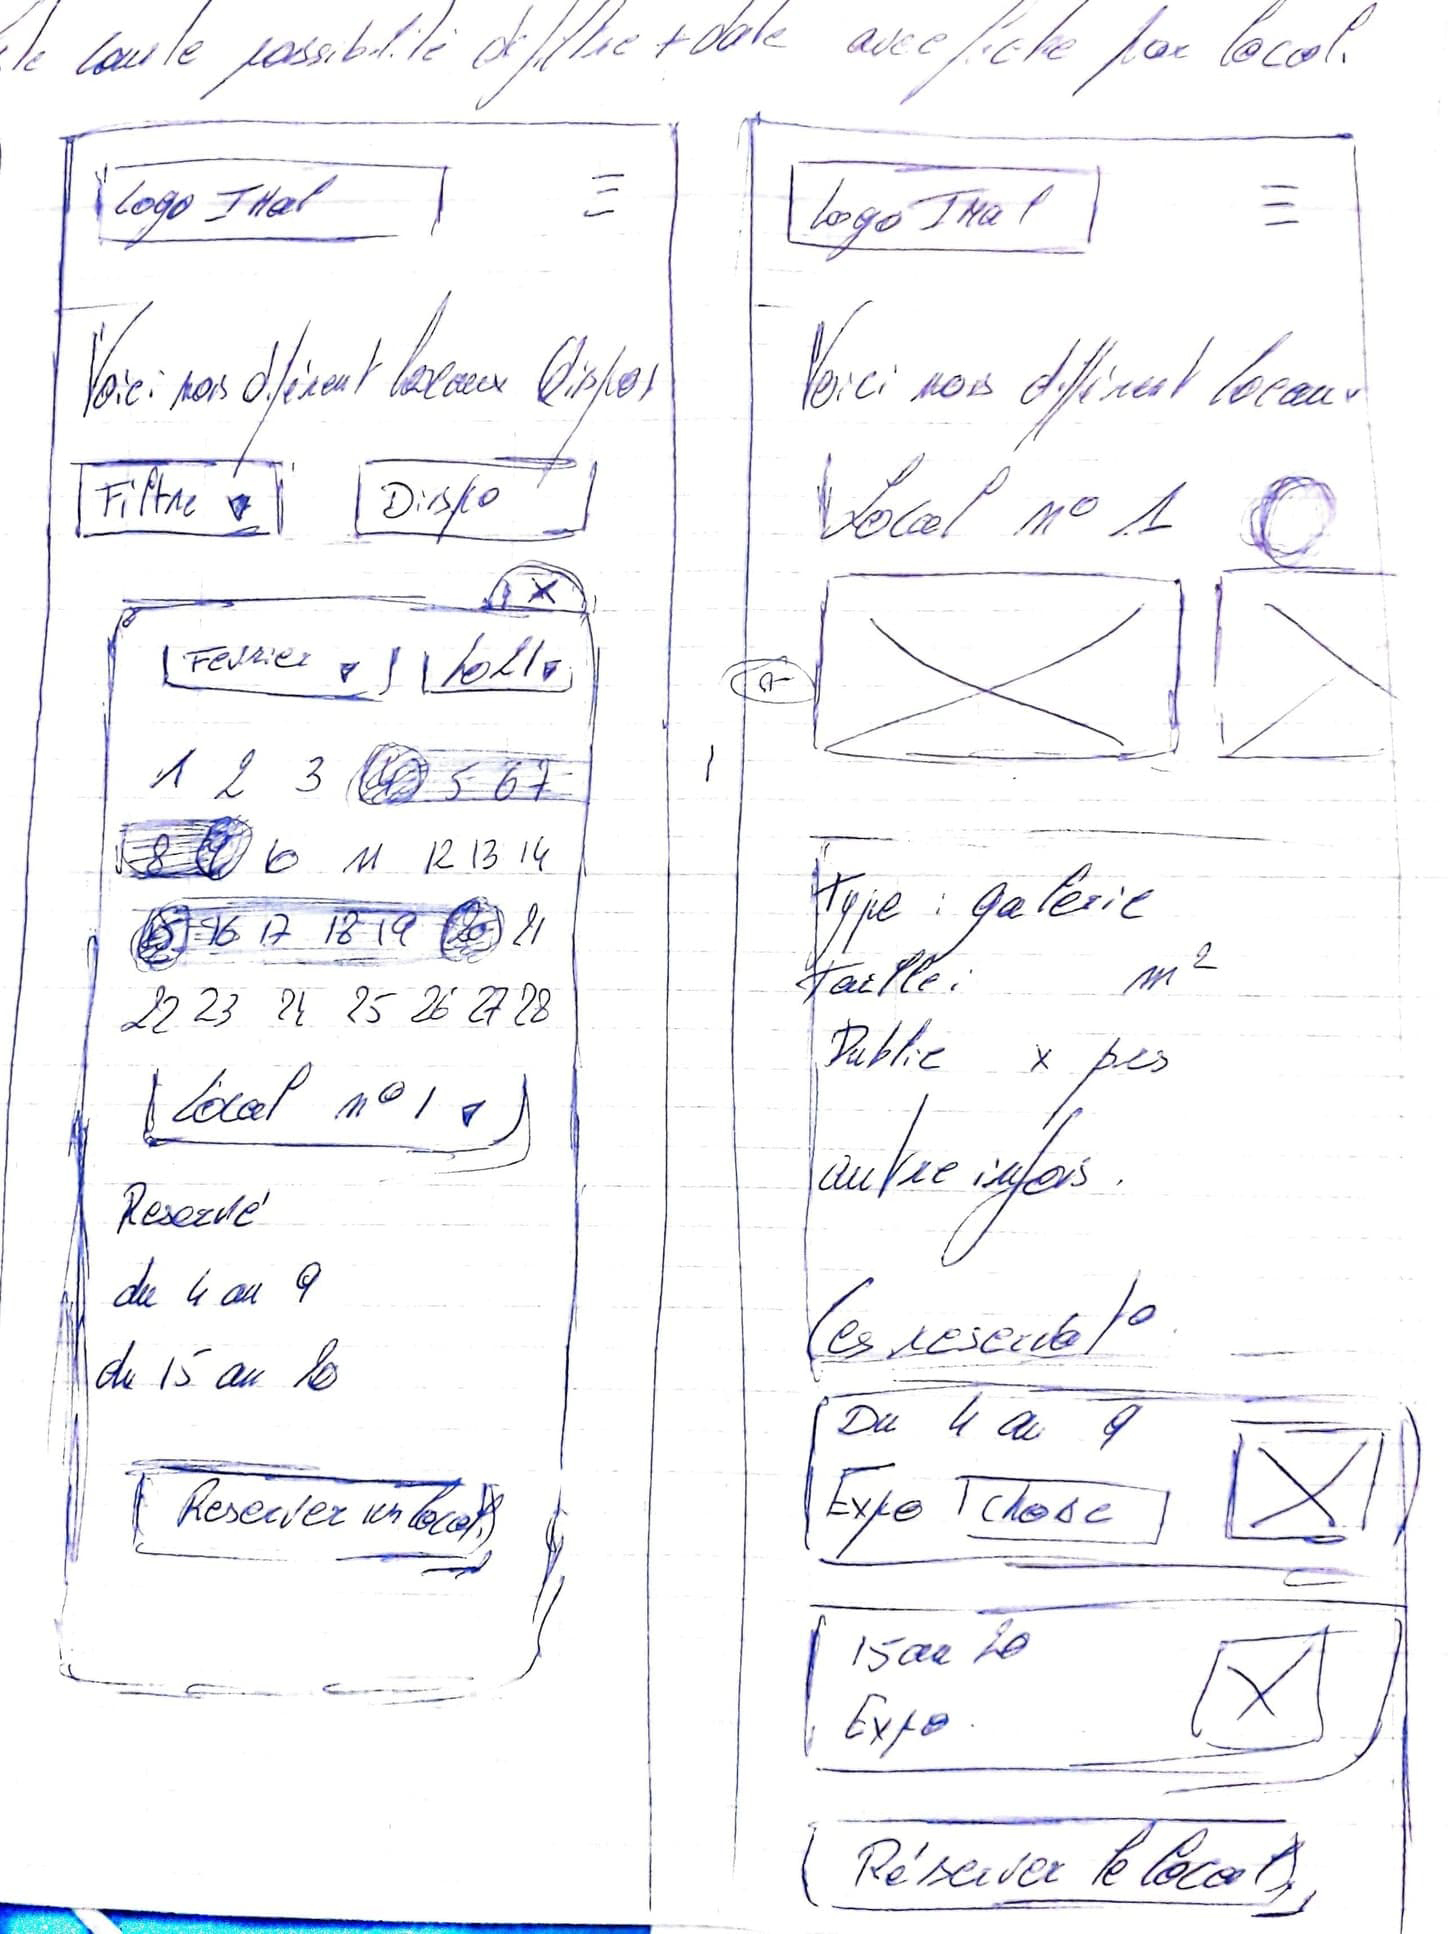 possibilité de filtre + date avec fiche par local.
Logo IMal
Voici nos différent locaux dispos
Filtre
Dispo
X
Fevrier
2021
1 2 3 4 5 6 7
8 9 10 11 12 13 14
15 16 17 18 19 20 21
22 23 24 25 26 27 28
Local n° 1
Reservé
du 4 au 9
du 15 au 20
Reserver un local
Logo IMal
Voici nos différent locaux
Local n° 1
Type : galerie
Taille : m²
Public x pers
autre infos.
Les reservat°
Du 4 au 9
Expo chose
15 au 20
Expo.
Réserver le local